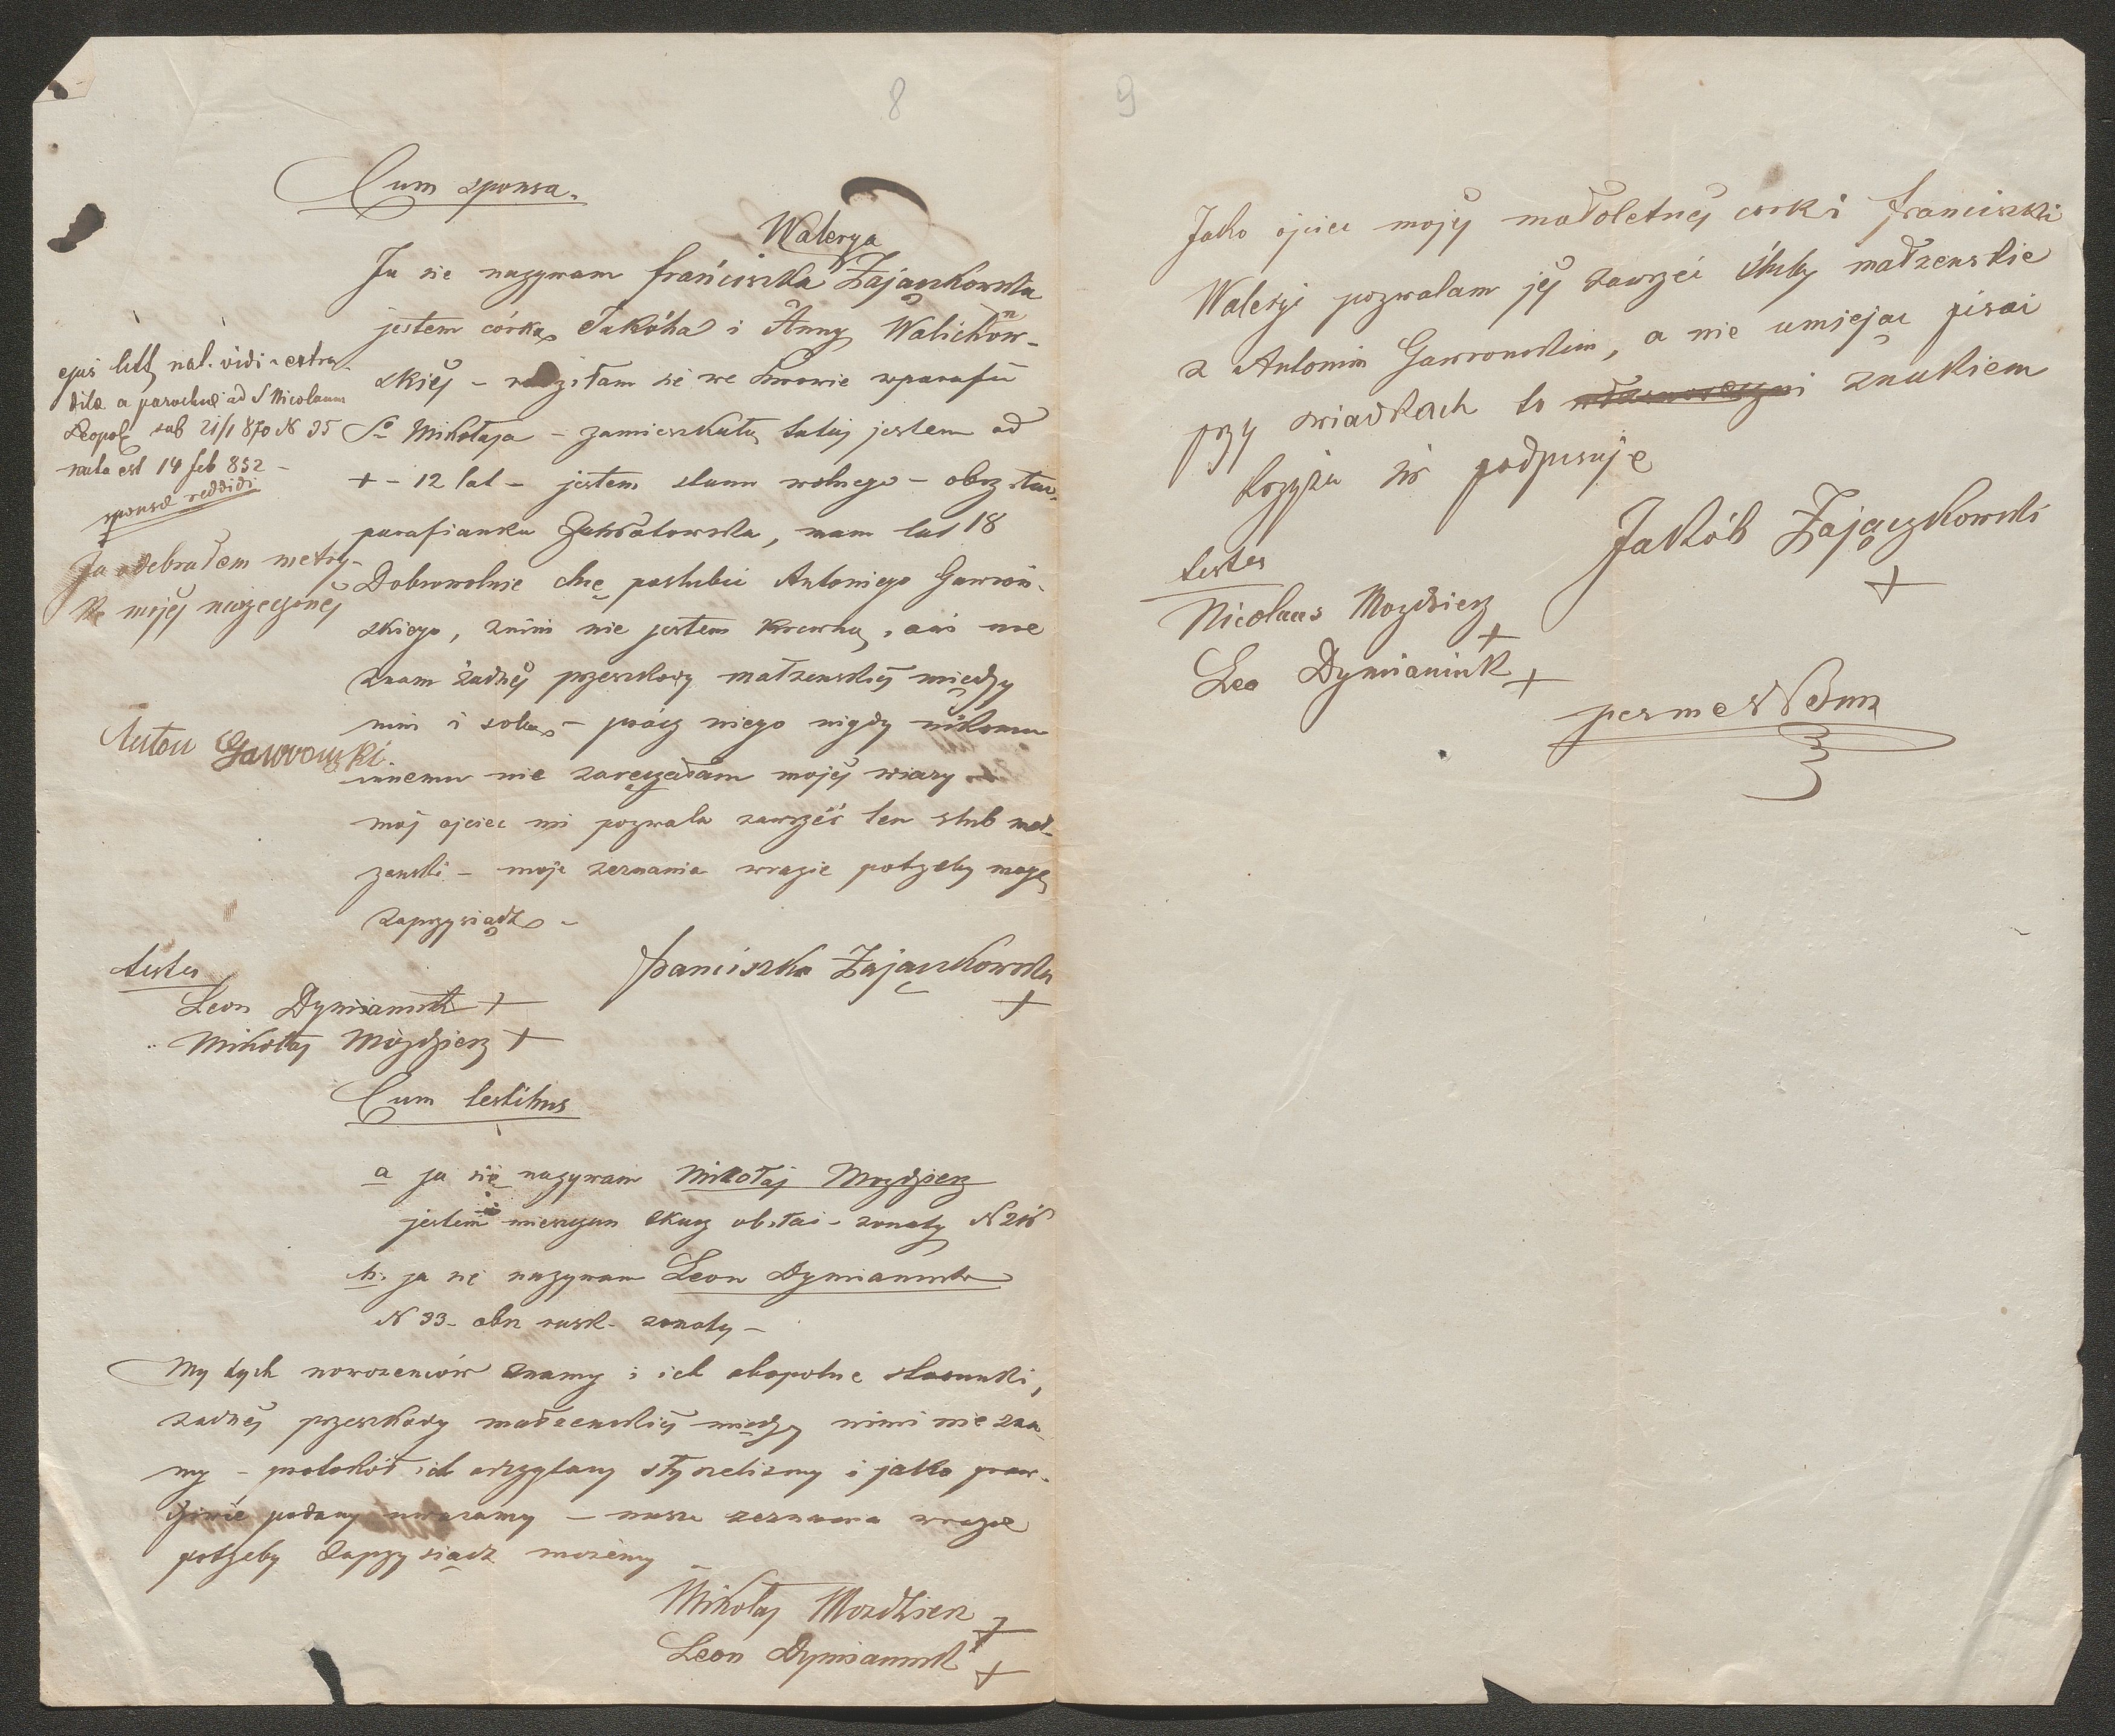 8
Cum sponsa.
Walerya
Ja sie nazywam franciszka Zajączkowska
jestem córką Jakóba i Anny Walichnow-
skiéj – rodziłam sie we Lwowie w parafii
So Mikołaja – zamieszkała tutaj jestem od
+ – 12 lat – jestem stanu wolnego – obrz. łac.
parafianka, mam lat 18
Dobrowolnie chcę poslubić Antoniego Gawroń-
skiego, znim nie jestem krewną, ani nie
znam żadnéj przeszkody małzenskiéj między
nim i sobą – prócz niego nigdy nikomu
innemu nie zaręczałam mojéj wiary
mój ojciec mi pozwala zawrzéć ten slub mał-
zenski – moje zeznania wrazie potrzeby mogę
zaprzysiądz –
franciszka Zajączkowska
+
ejus litt nat. vidi extra-
ditæ a parocho ad S Nicolaum
Leopol sub 21/1 870 N 35
nata est 14 feb 852 –
sponsæ reddidi
Ja odebrałem metry-
kę mojéj narzeczonéj
Anton Gawronski
testes
Leon Dymianiuk +
Mikołaj Moździerz +
Cum testibus
a ja się nazywam Mikołaj Mozdzierz
jestem obłac – zonaty N 216
b. ja się nazywam Leon Dymianiuk
N 33 – obrz rusk – zonaty –
My tych nowozenców znamy i ich obopolne stosunki,
zadnéj przeszkody małzenskiéj między nimi nie zna-
my – protokół ich odczytany słyszelismy i jako praw-
dziwie podany uwazamy – nasze zeznania wrazie
potrzeby zaprzysiądz mozemy –
Mikołaj Mozdzierz +
Leon Dymianiuk +
9
Jako ojciec mojéj małoletnéj corki franciszki
Waleryi pozwalam jéj zawrzéć śluby małzenskie
z Antonim Gawronskim, a nie umiejąc pisać
przy swiadkach to własnoręczni znakiem
krzyża sw podpisuję
Jakób Zajączkowski
+
testes
Nicolaus Mozdzierz
+
Leo Dymianiuk +
per me